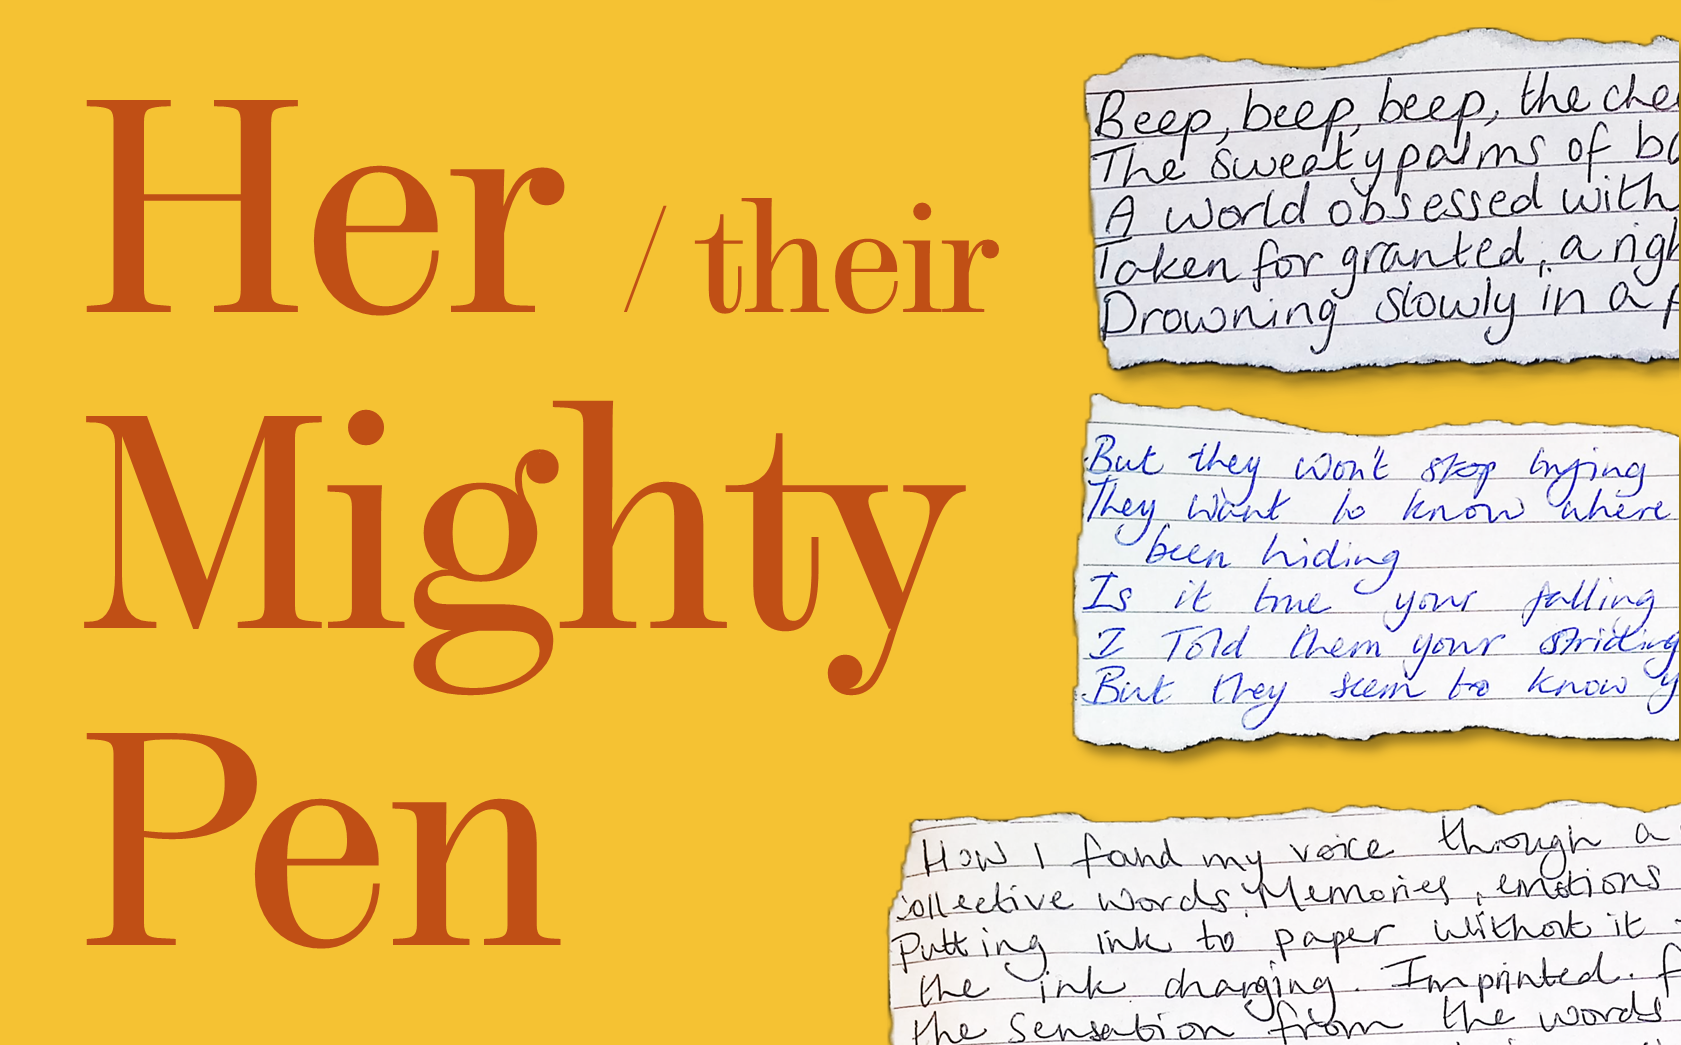 Her / their
Mighty
Pen
Beep, beep, beep, the che
The sweaty palms of
A world obsessed with
Taken for granted, a righ
Drowning slowly in a
But they won't stop trying
They want to know where
been hiding
Is it true your falling
I Told them your striding
But they seem to know y
How I found my voice through a
collective words. Memories, emotions
Putting ink to paper without it
the ink charging. Imprinted. f
the sensation from the words